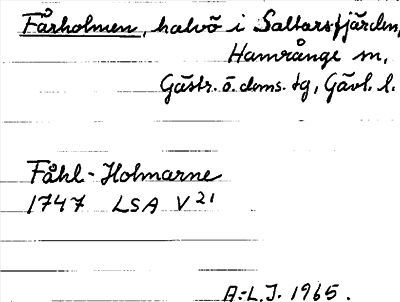 Fårholmen, halvö i Saltarsfjärden,
Hamrånge sn,
Gästr. ö. doms. tg, Gävl. l.
Fåhl-Holmarne
1747 LSA V 21
A.-L.J. 1965.